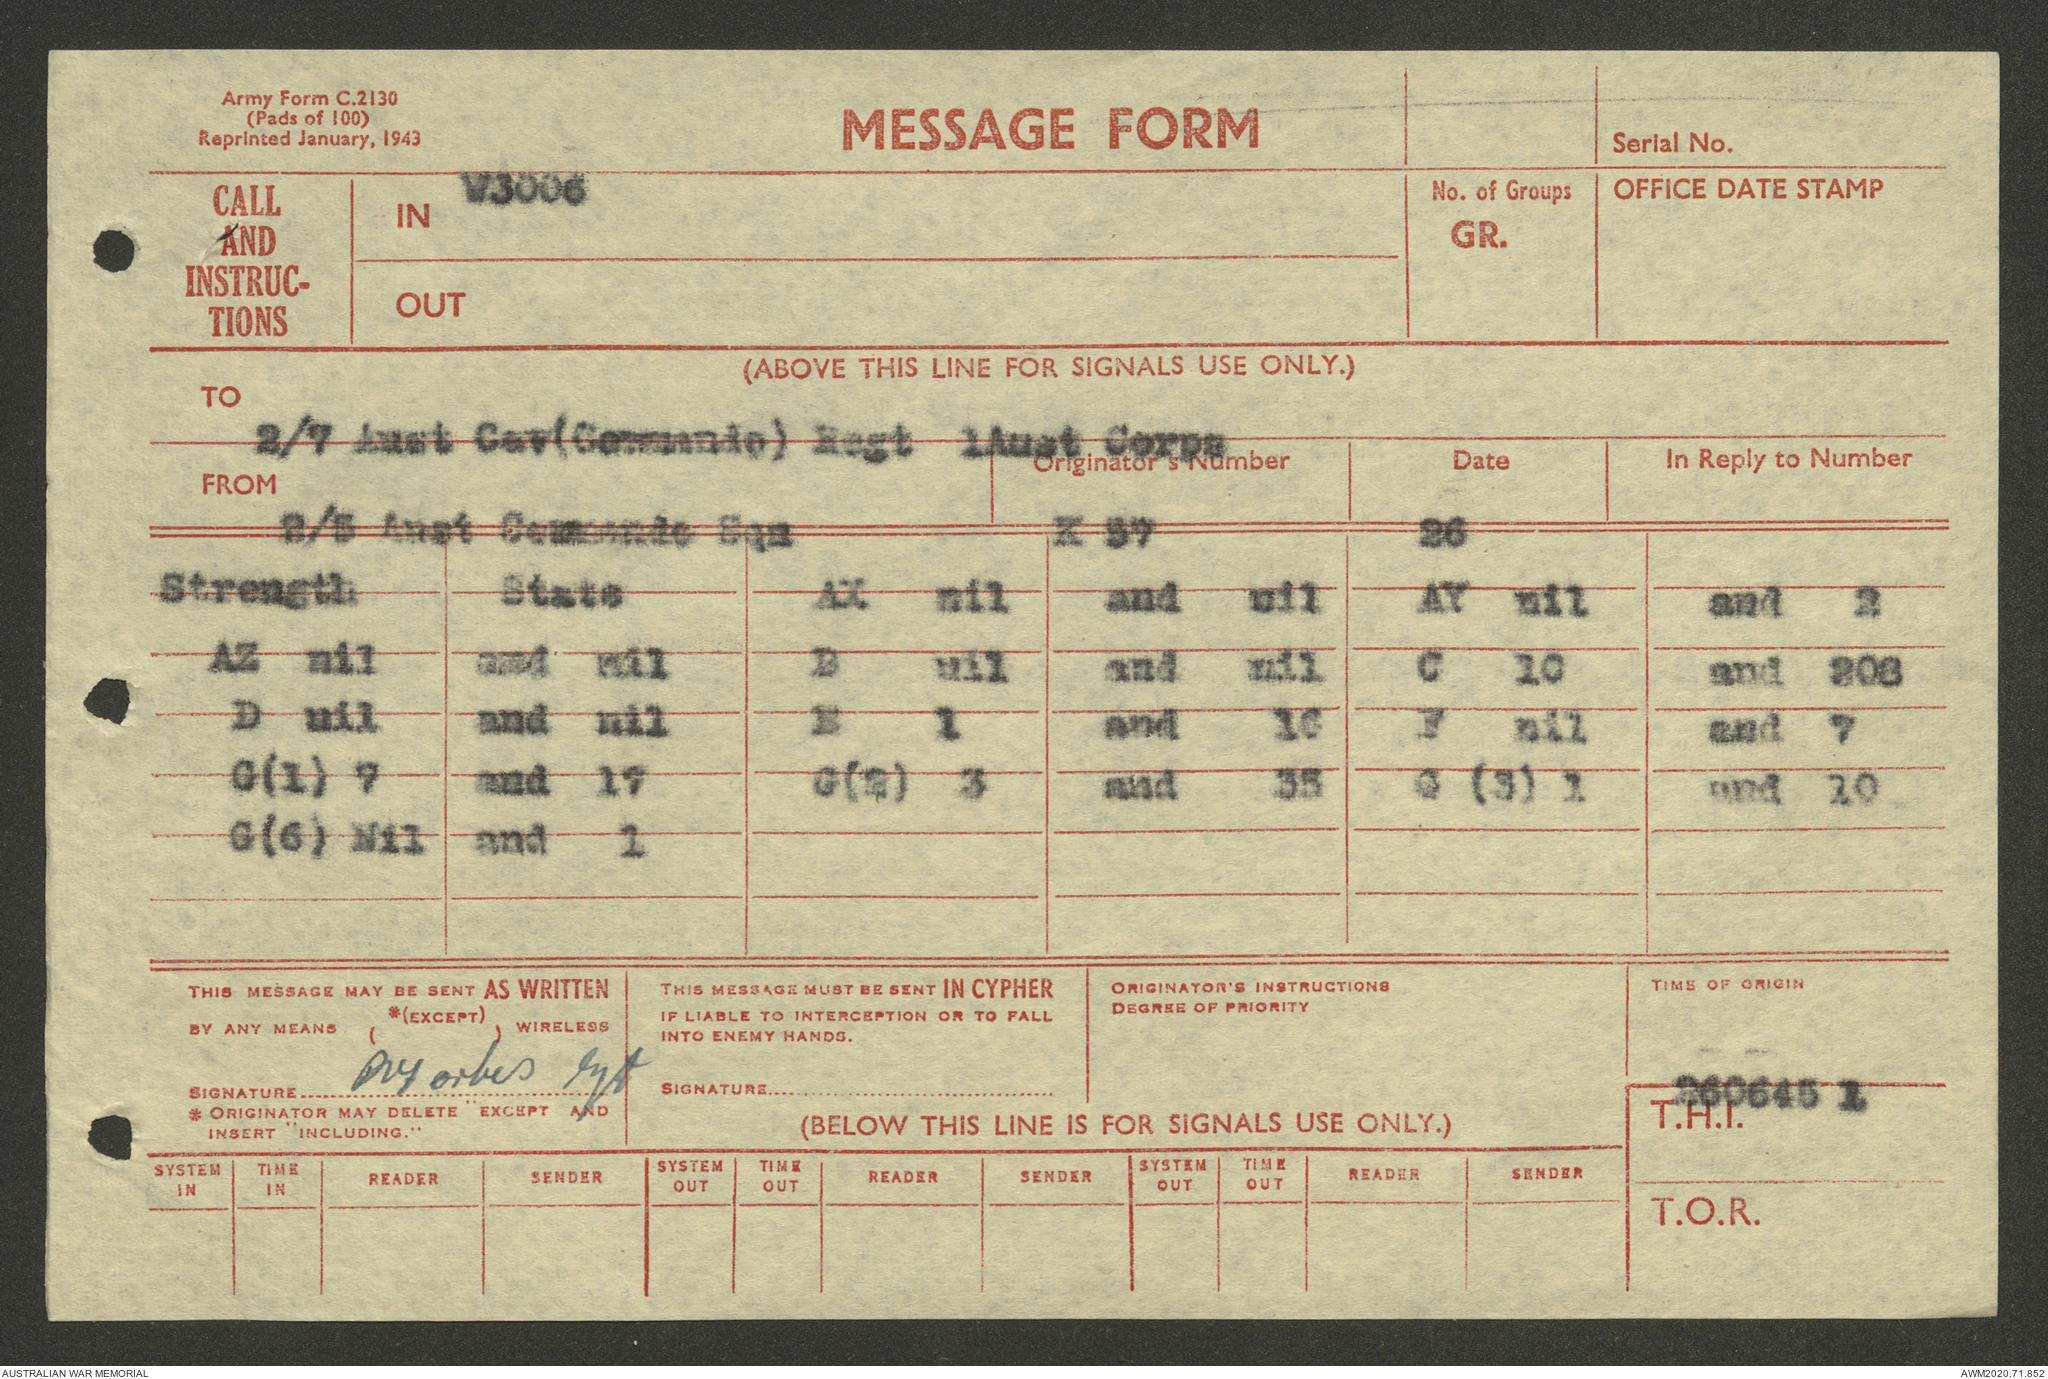 Army Form C.2130
(Pads of 100)
Reprinted January, 1943
MESSAGE FORM
Serial No.
CALL AND INSTRUC- TIONS
IN V3006
OUT
No. of Groups GR.
OFFICE DATE STAMP
(ABOVE THIS LINE FOR SIGNALS USE ONLY.)
TO
2/7 Aust Cav(Commando) Regt 1Aust Corps
FROM Originator's Number Date In Reply to Number
2/5 Aust Commando Sqn K 57 26
Strength State AX nil and nil AY nil and 2
AZ nil and nil B nil and nil C 10 and 208
D nil and nil E 1 and 16 F nil and 7
G(1) 7 and 17 G(2) 3 and 35 G (3) 1 and 10
G(6) Nil and 1
THIS MESSAGE MAY BE SENT AS WRITTEN
BY ANY MEANS ( *(EXCEPT) ) WIRELESS
SIGNATURE
* ORIGINATOR MAY DELETE "EXCEPT AND
INSERT "INCLUDING."
THIS MESSAGE MUST BE SENT IN CYPHER
IF LIABLE TO INTERCEPTION OR TO FALL
INTO ENEMY HANDS.
SIGNATURE
ORIGINATOR'S INSTRUCTIONS
DEGREE OF PRIORITY
TIME OF ORIGIN
260645 I
(BELOW THIS LINE IS FOR SIGNALS USE ONLY.)
T.H.I.
SYSTEM IN TIME IN READER SENDER SYSTEM OUT TIME OUT READER SENDER SYSTEM OUT TIME OUT READER SENDER
T.O.R.
AUSTRALIAN WAR MEMORIAL
AWM2020.71.852